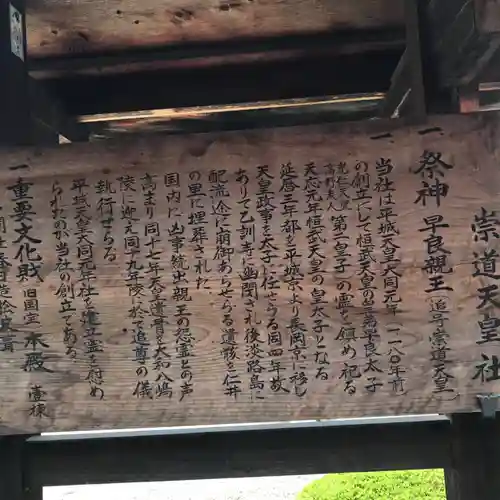 崇道天皇社
一 祭神 早良親王 追号崇道天皇
一 当社は平城天皇大同元年 一一八〇年前
の創立にして桓武天皇の早良太子
光仁天皇 高野夫人 第二皇子の霊を鎮め祀る
天応元年桓武天皇の皇太子となる
延暦三年都を平城京より長岡京に移し
天皇政事を太子に任せらる同四年故
ありて乙訓寺に幽閉され後淡路島に
配流途に崩御あらせらる遺骸を仁井
の里に埋葬された
国内に凶事続出親王の怨霊との声
高まり同十七年天皇遺骨を大和八嶋
陵に迎え同十九年陵に於て追尊の儀
執行せらる
平城天皇大同元年社を建立霊を慰め
られたのが当社の創立である
一 重要文化財 旧国宝 本殿 壹棟